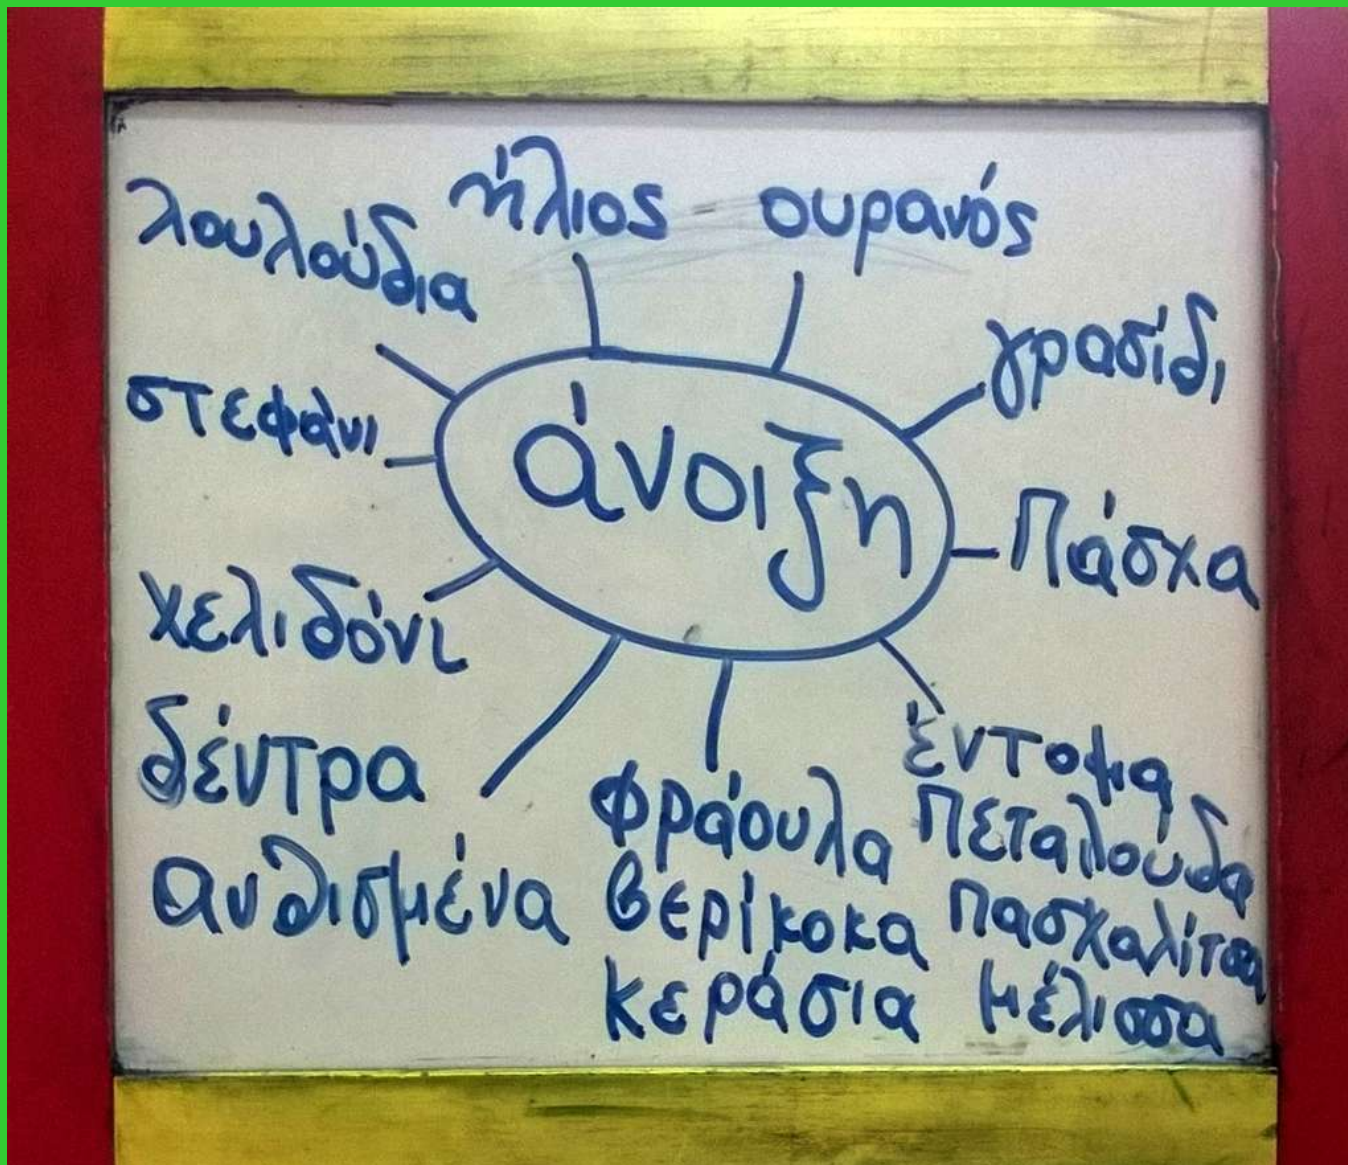 λουλούδια
ήλιος - ουρανός
γρασίδι
στεφάνι
άνοιξη
Πάσχα
χελιδόνι
δέντρα
ανθισμένα
φράουλα
βερίκοκα
κεράσια
έντομα
πεταλούδα
πασχαλίτσα
μέλισσα